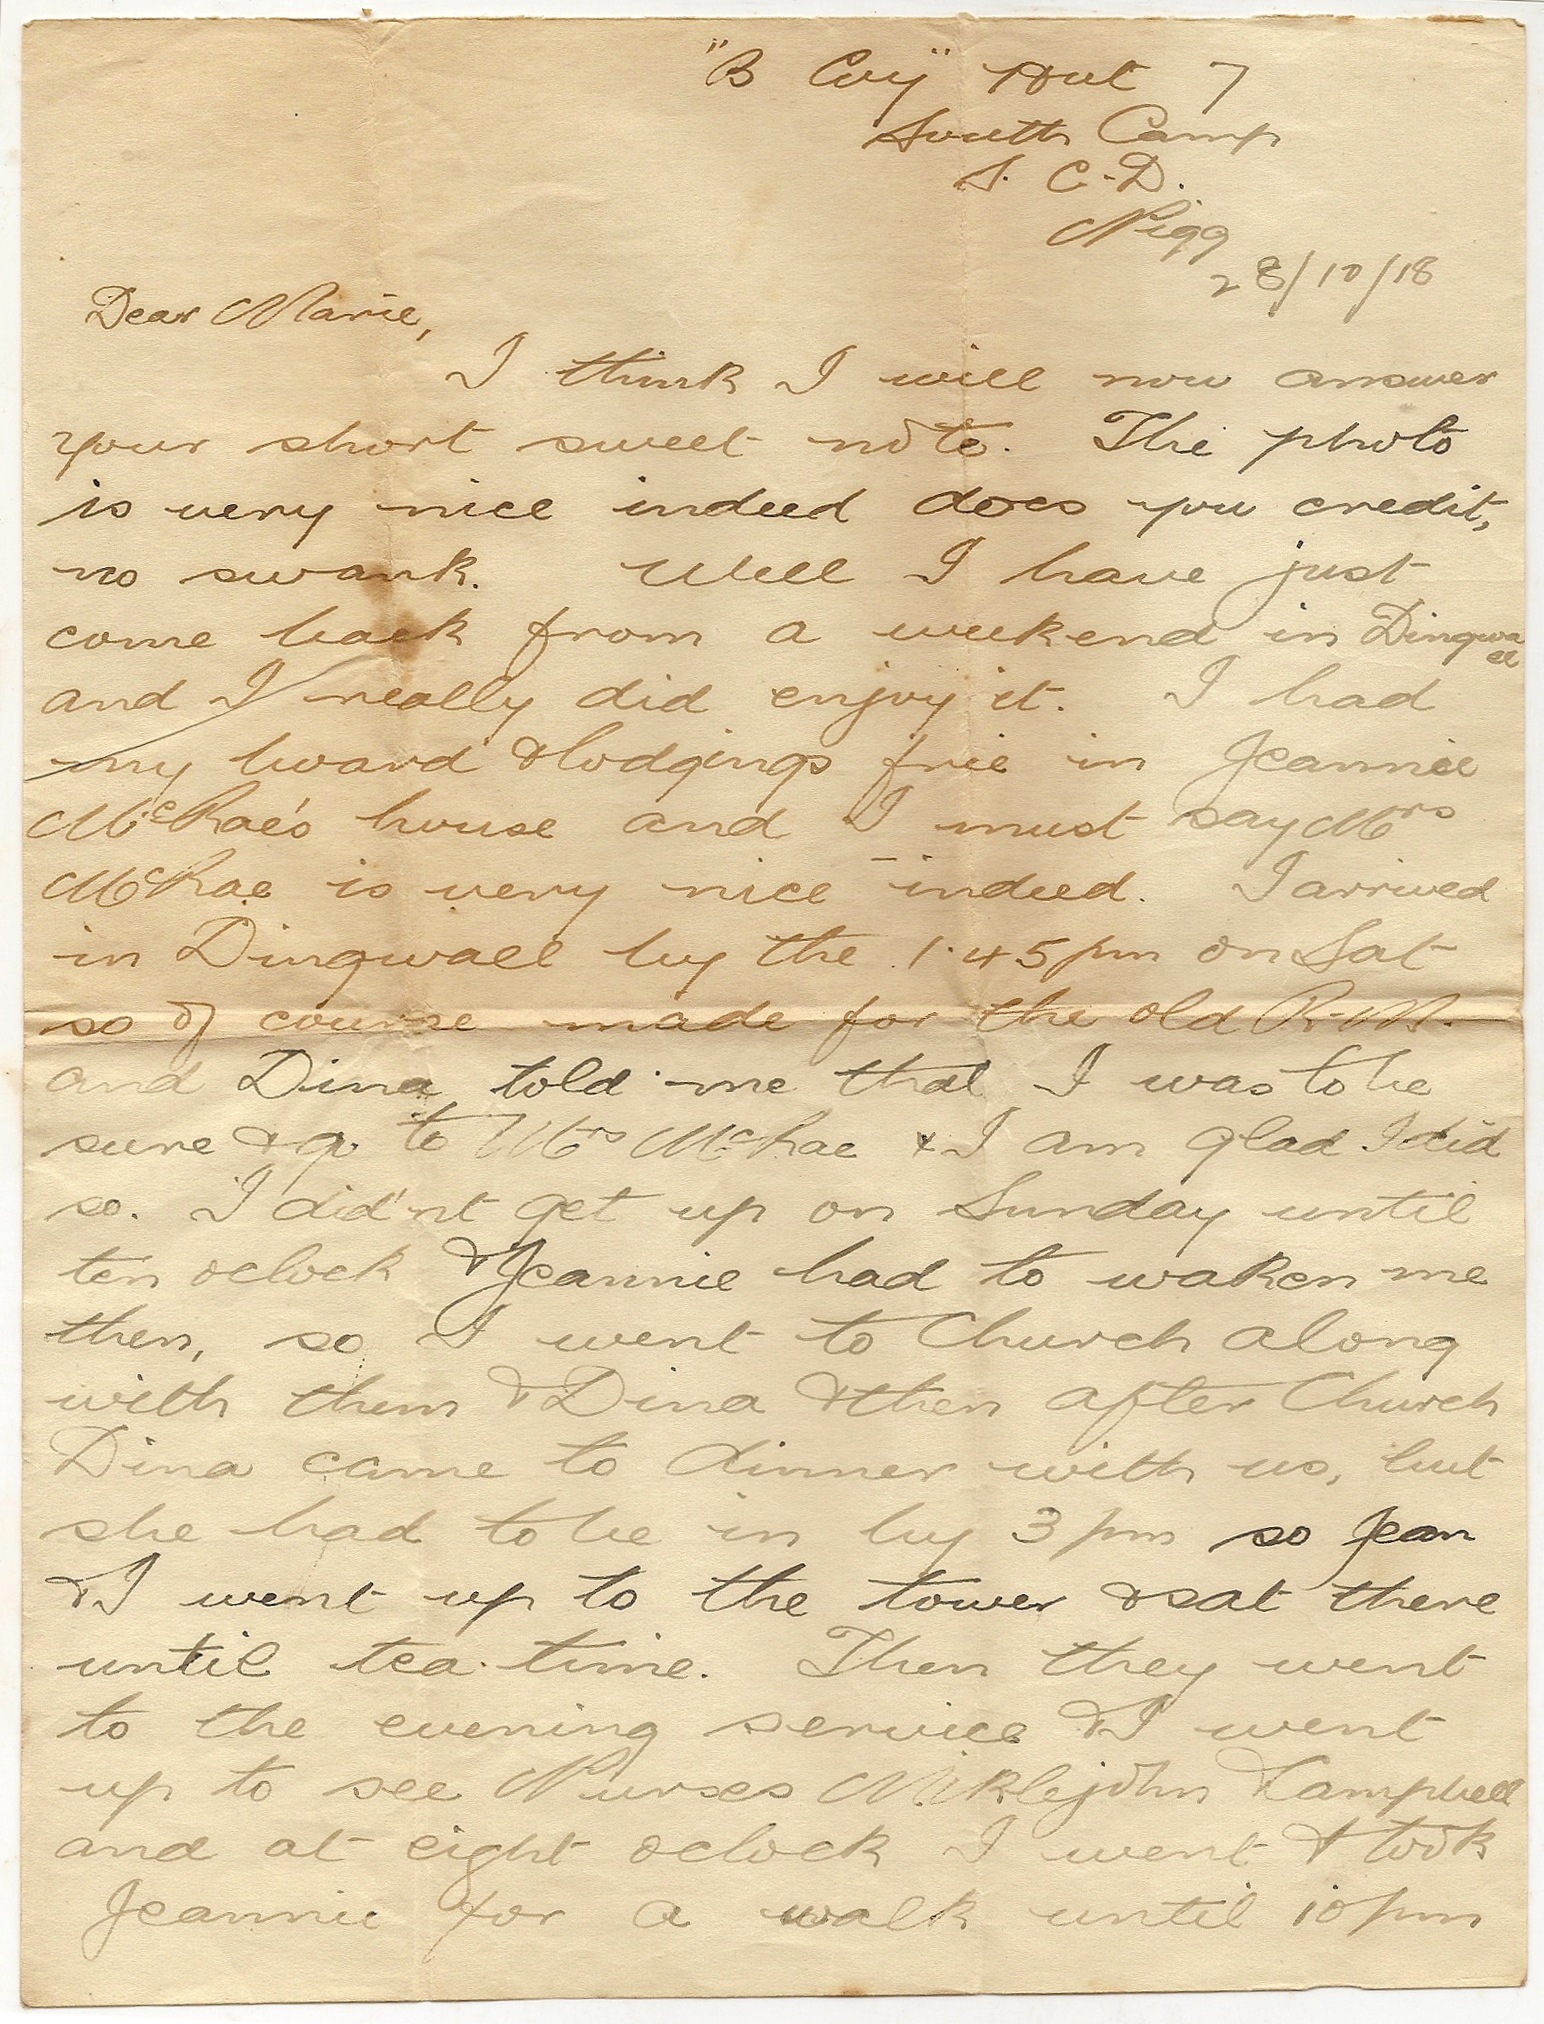 "B Coy" Hut 7
South Camp
S. C. D.
Nigg
28/10/18
Dear Marie,
I think I will now answer
your short sweet note. The photo
is very nice indeed does you credit,
no swank. Well I have just
come back from a weekend in Dingwall
and I really did enjoy it. I had
my board & lodgings free in Jeannie
McRae's house and I must say Mrs
McRae is very nice indeed. I arrived
in Dingwall by the 1.45 pm on Sat
so of course made for the old R.M.
and Dina told me that I was to be
sure & go to Mrs McRae & I am glad I did
so. I did'nt get up on Sunday until
ten oclock & Jeannie had to waken me
then, so I went to Church along
with them & Dina & then after Church
Dina came to dinner with us, but
she had to be in by 3 pm so Jean
& I went up to the tower & sat there
until tea time. Then they went
to the evening service & I went
up to see Nurses Miklejohn & Campbell
and at eight oclock I went & took
Jeannie for a walk until 10 pm